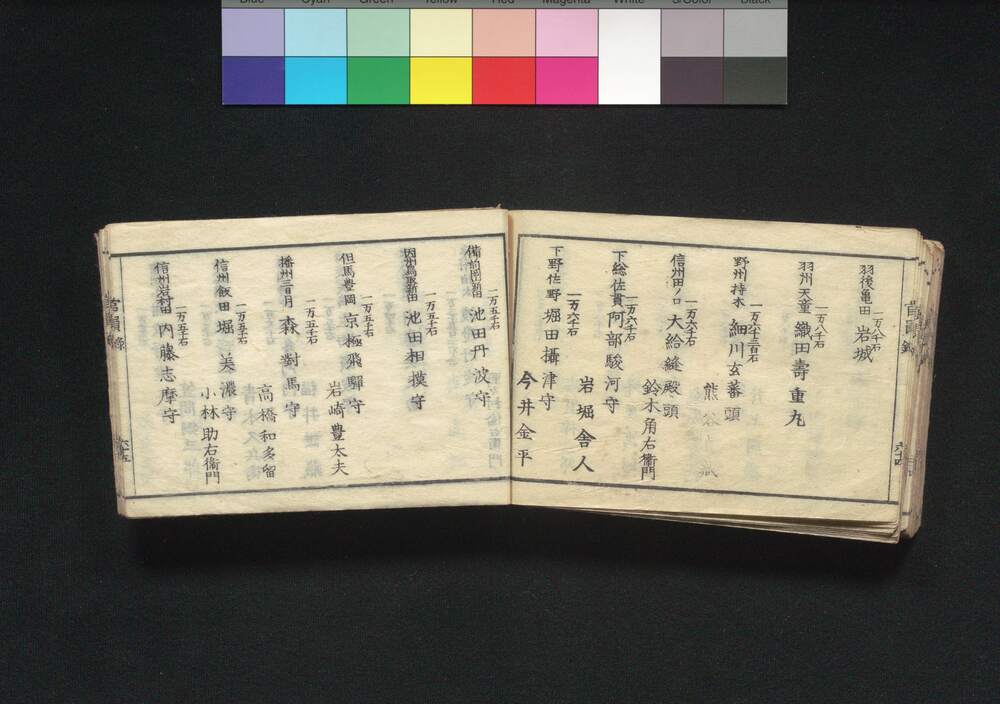 Blue Cyan Green Yellow Red Magenta White 3/Color Black
羽後亀田 一万八千石 岩城
羽州天童 一万八千石 織田壽重丸
野州持木 一万六千三百石 細川玄蕃頭
熊谷
信州田ノ口 一万六千石 大給縫殿頭
鈴木角右衞門
下総佐貫 一万六千石 阿部駿河守
岩堀舎人
下野佐野 一万六千石 堀田攝津守
今井金平
備前岡山新田 一万五千石 池田丹波守
因州鳥取新田 一万五千石 池田相摸守
但馬豊岡 一万五千石 京極飛驒守
岩崎豊太夫
播州三日月 一万五千石 森對馬守
高橋和多留
信州飯田 一万五千石 堀美濃守
小林助右衞門
信州岩村田 一万五千石 内藤志摩守
六十五